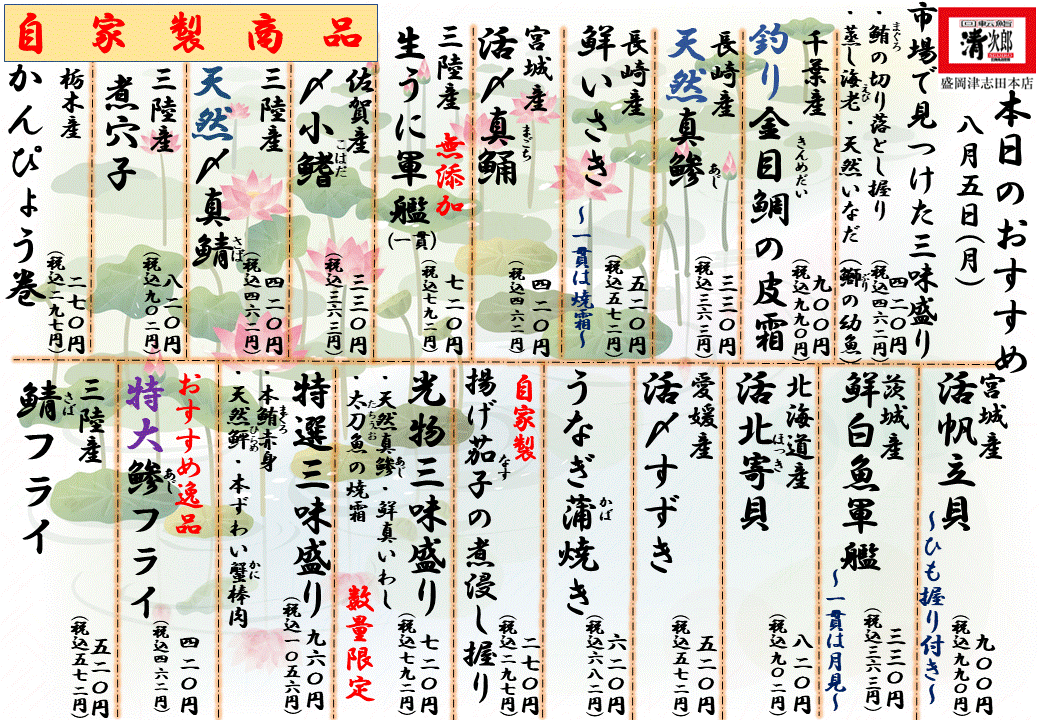 回転鮨
清次郎
盛岡津志田本店
本日のおすすめ
八月五日(月)
市場で見つけた三味盛り
・鮪の切り落とし握り
まぐろ
・蒸し海老・天然いなだ(鰤の幼魚)
えび
ぶり
四二〇円
(税込四六二円)
千葉産
釣り金目鯛の皮霜
きんめだい
九〇〇円
(税込九九〇円)
長崎産
天然真鯵
あじ
三三〇円
(税込三六三円)
長崎産
鮮いさき
~一貫は焼霜~
五二〇円
(税込五七二円)
宮城産
活〆真鯒
まごち
四二〇円
(税込四六二円)
三陸産
無添加
生うに軍艦
(一貫)
七二〇円
(税込七九二円)
佐賀産
〆小鰭
こはだ
三三〇円
(税込三六三円)
三陸産
天然〆真鯖
さば
四二〇円
(税込四六二円)
三陸産
煮穴子
八二〇円
(税込九〇二円)
栃木産
かんぴょう巻
二七〇円
(税込二九七円)
自家製商品
宮城産
活帆立貝
~ひも握り付き~
九〇〇円
(税込九九〇円)
茨城産
鮮白魚軍艦
~一貫は月見~
三三〇円
(税込三六三円)
北海道産
活北寄貝
ほっき
八二〇円
(税込九〇二円)
愛媛産
活〆すずき
五二〇円
(税込五七二円)
うなぎ蒲焼き
かば
六二〇円
(税込六八二円)
自家製
揚げ茄子の煮浸し握り
なす
二七〇円
(税込二九七円)
光物三味盛り
・天然真鯵・鮮真いわし
あじ
・太刀魚の焼霜
たちうお
七二〇円
(税込七九二円)
数量限定
特選三味盛り
・本鮪赤身
まぐろ
・天然鮃・本ずわい蟹棒肉
ひらめ
かに
九六〇円
(税込一〇五六円)
おすすめ逸品
特大鯵フライ
あじ
四二〇円
(税込四六二円)
三陸産
鯖フライ
さば
五二〇円
(税込五七二円)